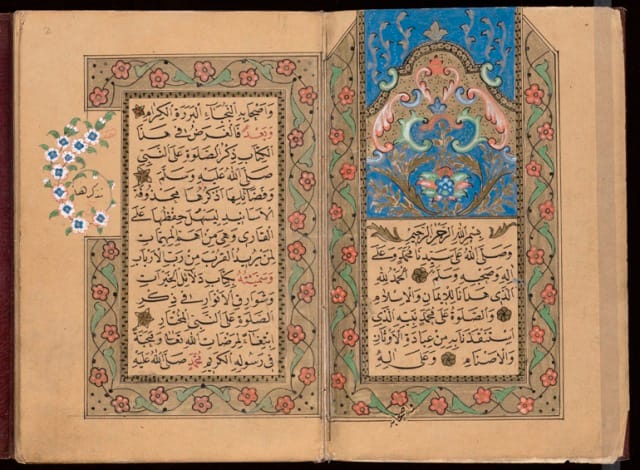 بسم الله الرحمن الرحيم
وصلى الله على سيدنا محمد وعلى
اله وصحبه وسلم الحمد لله
الذى هدانا للايمان والاسلام
والصلوة على محمد نبيه الذى
استنقذنا به من عبادة الاوثان
والاصنام وعلى اله
واصحابه النجباء البررة الكرام
وبعد فالغرض فى هذا
الكتاب ذكر الصلوة على النبى
صلى الله عليه وسلم
وفضائلها اذكرها محذوفة
الاسانيد ليسهل حفظها على
القارى وهى من اهم المهمات
لمن يريد القرب من رب الارباب
وسميته بكتاب دلائل الخيرات
وشوارق الانوار فى ذكر
الصلوة على النبى المختار
ابتغاء لمرضات الله تعالى ومحبة
فى رسوله الكريم محمد صلى الله عليه
2